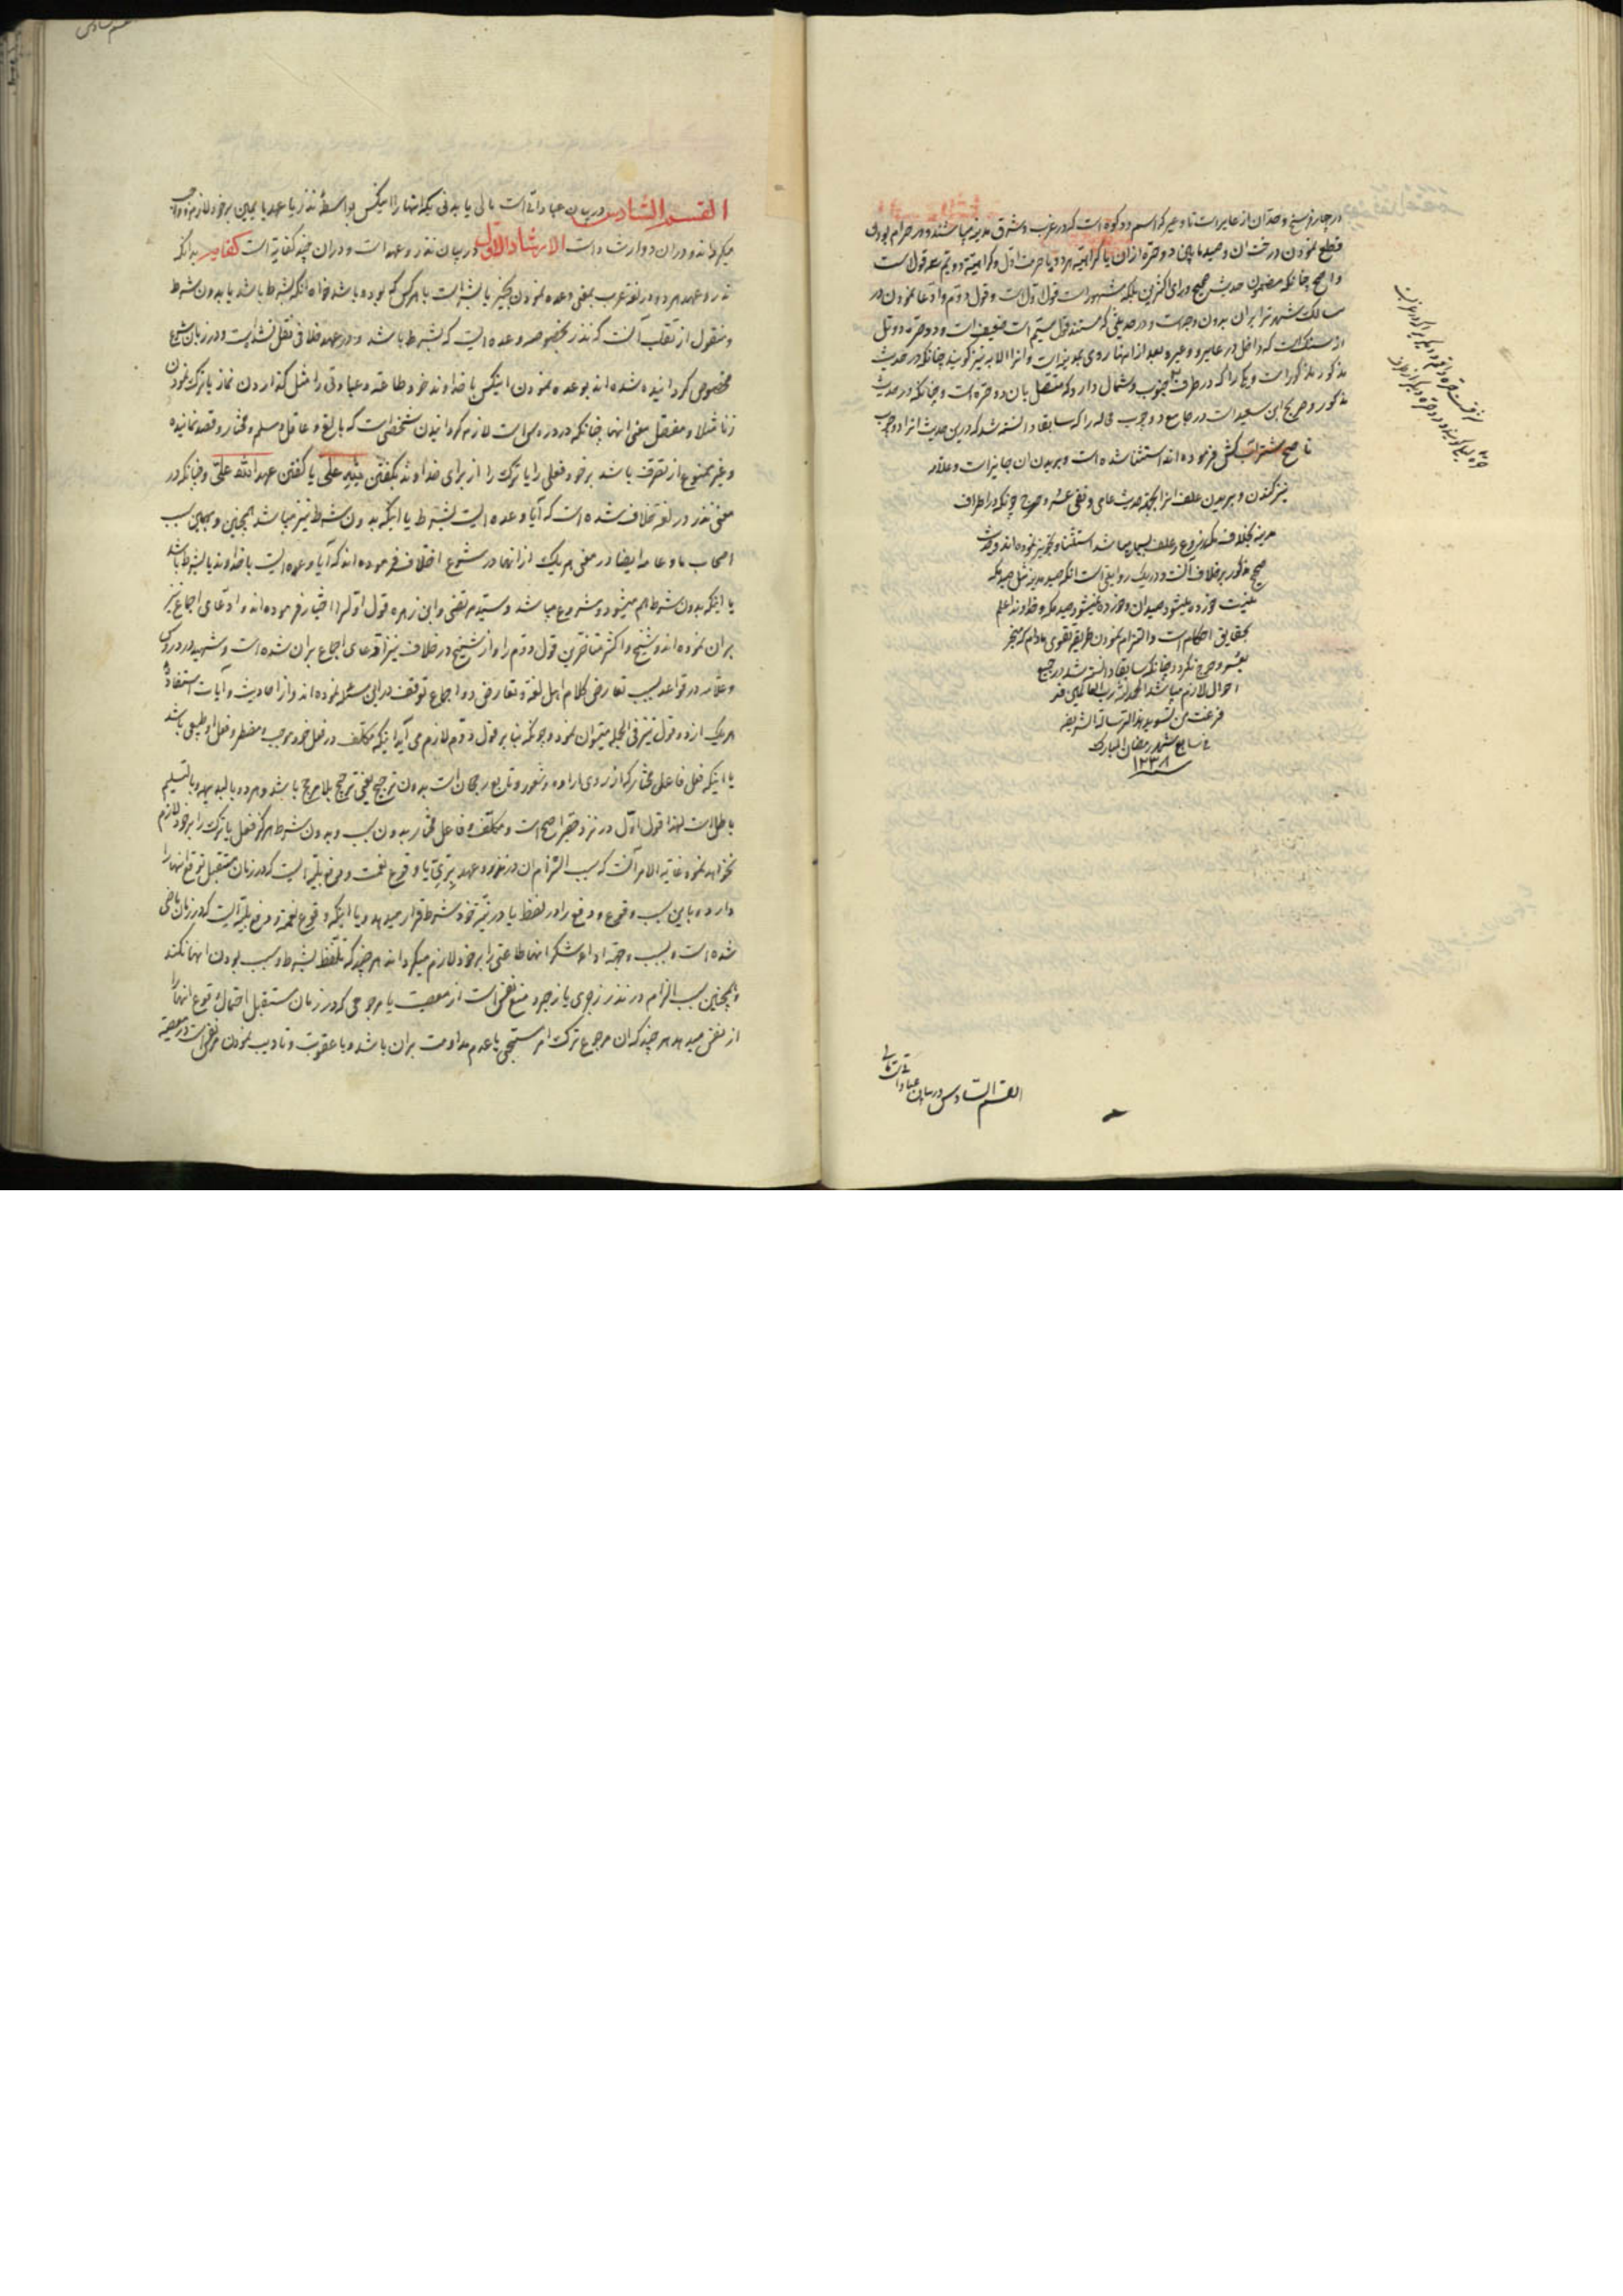 از چار فرسخ و حد آن از عایر است تا وعیر که اسم دو کوه است که در غرب و شرق مدینه میباشند و در حرام بودن
قطع نمودن درختان و صید مابین دو حره از آن یا کراهیة هر دو یا حرمت اول و کراهیة دویم سه قول است
و اصح چنانکه مضمون حدیث صحیح و رای اکثرین بلکه مشهور است قول اول است و قول دوم و ادعا نمودن در
مسالک شهرت را بران بدون وجه است و در حدیثی که مستند قول سیم است ضعیف است و دو حره
از سنگ است که داخل در عایر و وعیر و بعد از آنها روی بمدینه است و آنرا لابه نیز گویند چنانکه در حدیث
مذکور مذکور است و یکی را که در طرف جنوب و شمال دارد که متصل بان دو حره است و چنانکه در حدیث
مذکور و صریح ابن سعید است در جامع و وجوب کفاله را که سابقا دانسته شد که درین حدیث
ناضح فرموده اند استثنا شده است و بریدن آن جایز است و علامه
نیز کندن و بریدن علف را بجهة حدیث عامی و نفی عسر و حرج چونکه در اطراف
مدینه بخلاف مکه زروع و علف بسیار میباشد استثنا و تجویز نموده اند و حدیث
صحیح مذکور بر خلاف آنست و در یک روایتی است انکه صید مدینه مثل صید مکه
نیست خورده میشود صید آن و خورده نمیشود صید مکه و خداوند اعلم
بحقایق احکام است و التزام نمودن طریقه تقوی مادام که منجر
بعسر و حرج نگردد چنانکه سابقا دانسته شد در جمیع
احوال لازم میباشد الحمد لله رب العالمین قد
فرغت من تسوید هذا الرسالة الشریفه
فی سابع شهر رمضان المبارک
١٢٣٨
القسم السادس در بیان عباداتی است مالی
القسم السادس در بیان عباداتی است مالی یا بدنی که انها را اینکس بواسطۀ نذر یا عهد یا یمین بر خود لازم و واجب
میگرداند و دران دو ارشاد است الارشاد الاول در بیان نذر و عهد است و دران چند کفایة است کفایة بدانکه
نذر و عهد هر دو در لغة عرب بمعنی وعده نمودن بخیر یا بشر است با هر کس که بوده باشد خواه انکه بشرط باشد یا بدون شرط
و منقول از ثعلب آنست که نذر بخصوصه وعده ایست که بشرط باشد و در عهد خلافی نقل نشده است و در زبان شرع
مخصوص گردانیده شده اند بوعده نمودن اینکس با خداوند خود طاعة و عبادتی را مثل گذاردن نماز یا ترک نمودن
زنا مثلا و مفصل معنی انها چنانکه در دروس است لازم گردانیدن شخصی است که بالغ و عاقل و مسلم و مختار و قصد نماینده
و غیر ممنوع از تصرف باشد بر خود فعلی را یا ترک را از برای خداوند بگفتن لله علی یا گفتن عهد الله علی و چنانکه در
معنی نذر در لغة خلاف شده است که آیا وعده ایست بشرط یا اینکه بدون شرط نیز میباشد همچنین و بهمین سبب
اصحاب ما و عامه ایضا در معنی هر یک از انها در شرع اختلاف فرموده اند که آیا وعده ایست با خداوند یا بشرط باشد
یا اینکه بدون شرط هم میشود و مشروع میباشد و سید مرتضی و ابن زهره قول اول را اختیار فرموده اند و ادعای اجماع نیز
بران نموده اند و شیخ و اکثر متاخرین قول دوم را و از شیخ در خلاف نیز ادعای اجماع بران شده است و شهید در دروس
و علامه در قواعد بسبب تعارض کلام اهل لغة و تعارض دو اجماع توقف در این مسئله نموده اند و از احادیث و آیات استفاده
هر یک از دو قول نیز فی الجمله میتوان نمود و چونکه بنا بر قول دوم لازم می آید اینکه مکلف در فعل خود موجب و مضطر و فعل او طبیعی باشد
یا اینکه فعل فاعل مختار که از روی اراده و شعور و تابع رجحان است بدون ترجیح یعنی ترجیح بلا مرجح باشد و هر دو بالبدیهه و بالتسلیم
باطل است لهذا قول اول در نزد حقیر اصح است و مکلف و فاعل مختار بدون سبب و بدون شرط هرگز فعل یا ترک را بر خود لازم
نخواهد نمود غایة الامر آنست که سبب التزام ان در نذر و عهد یا وقوع نعمت و دفع بلیه ایست که در زمان مستقبل توقع انها را
دارد و باین سبب وقوع و دفع را در لفظ یا در نیة خود شرط قرار میدهد و یا اینکه وقوع نعمة و دفع بلیه ایست که در زمان ماضی
شده است و بسبب و جهة اداء شکر انها طاعتی را بر خود لازم میگرداند هر چند که تلفظ بشرط و سبب بودن انها نکند
و همچنین سبب التزام در نذر زجری یا زجر و منع نفس است از معصیت یا مرجوحی که در زمان مستقبل احتمال وقوع انها را
از نفس میدهد هر چند که ان مرجوح ترک امر مستحبی یا عدم مداومت بران باشد و یا عقوبت و تادیب نمودن نفس است در معصیة